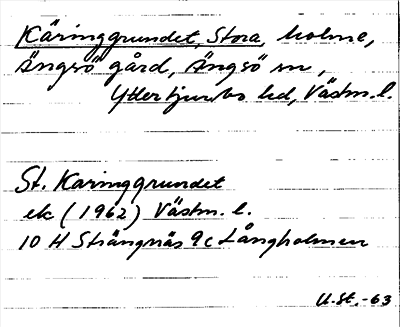 Käringgrundet, Stora, holme,
Ängsö gård, Ängsö sn,
Yttertjurbo hd, Västm. l.
St. Käringgrundet
ek (1962) Västm. l.
10 H Strängnäs 9c Långholmen
U.St.-63